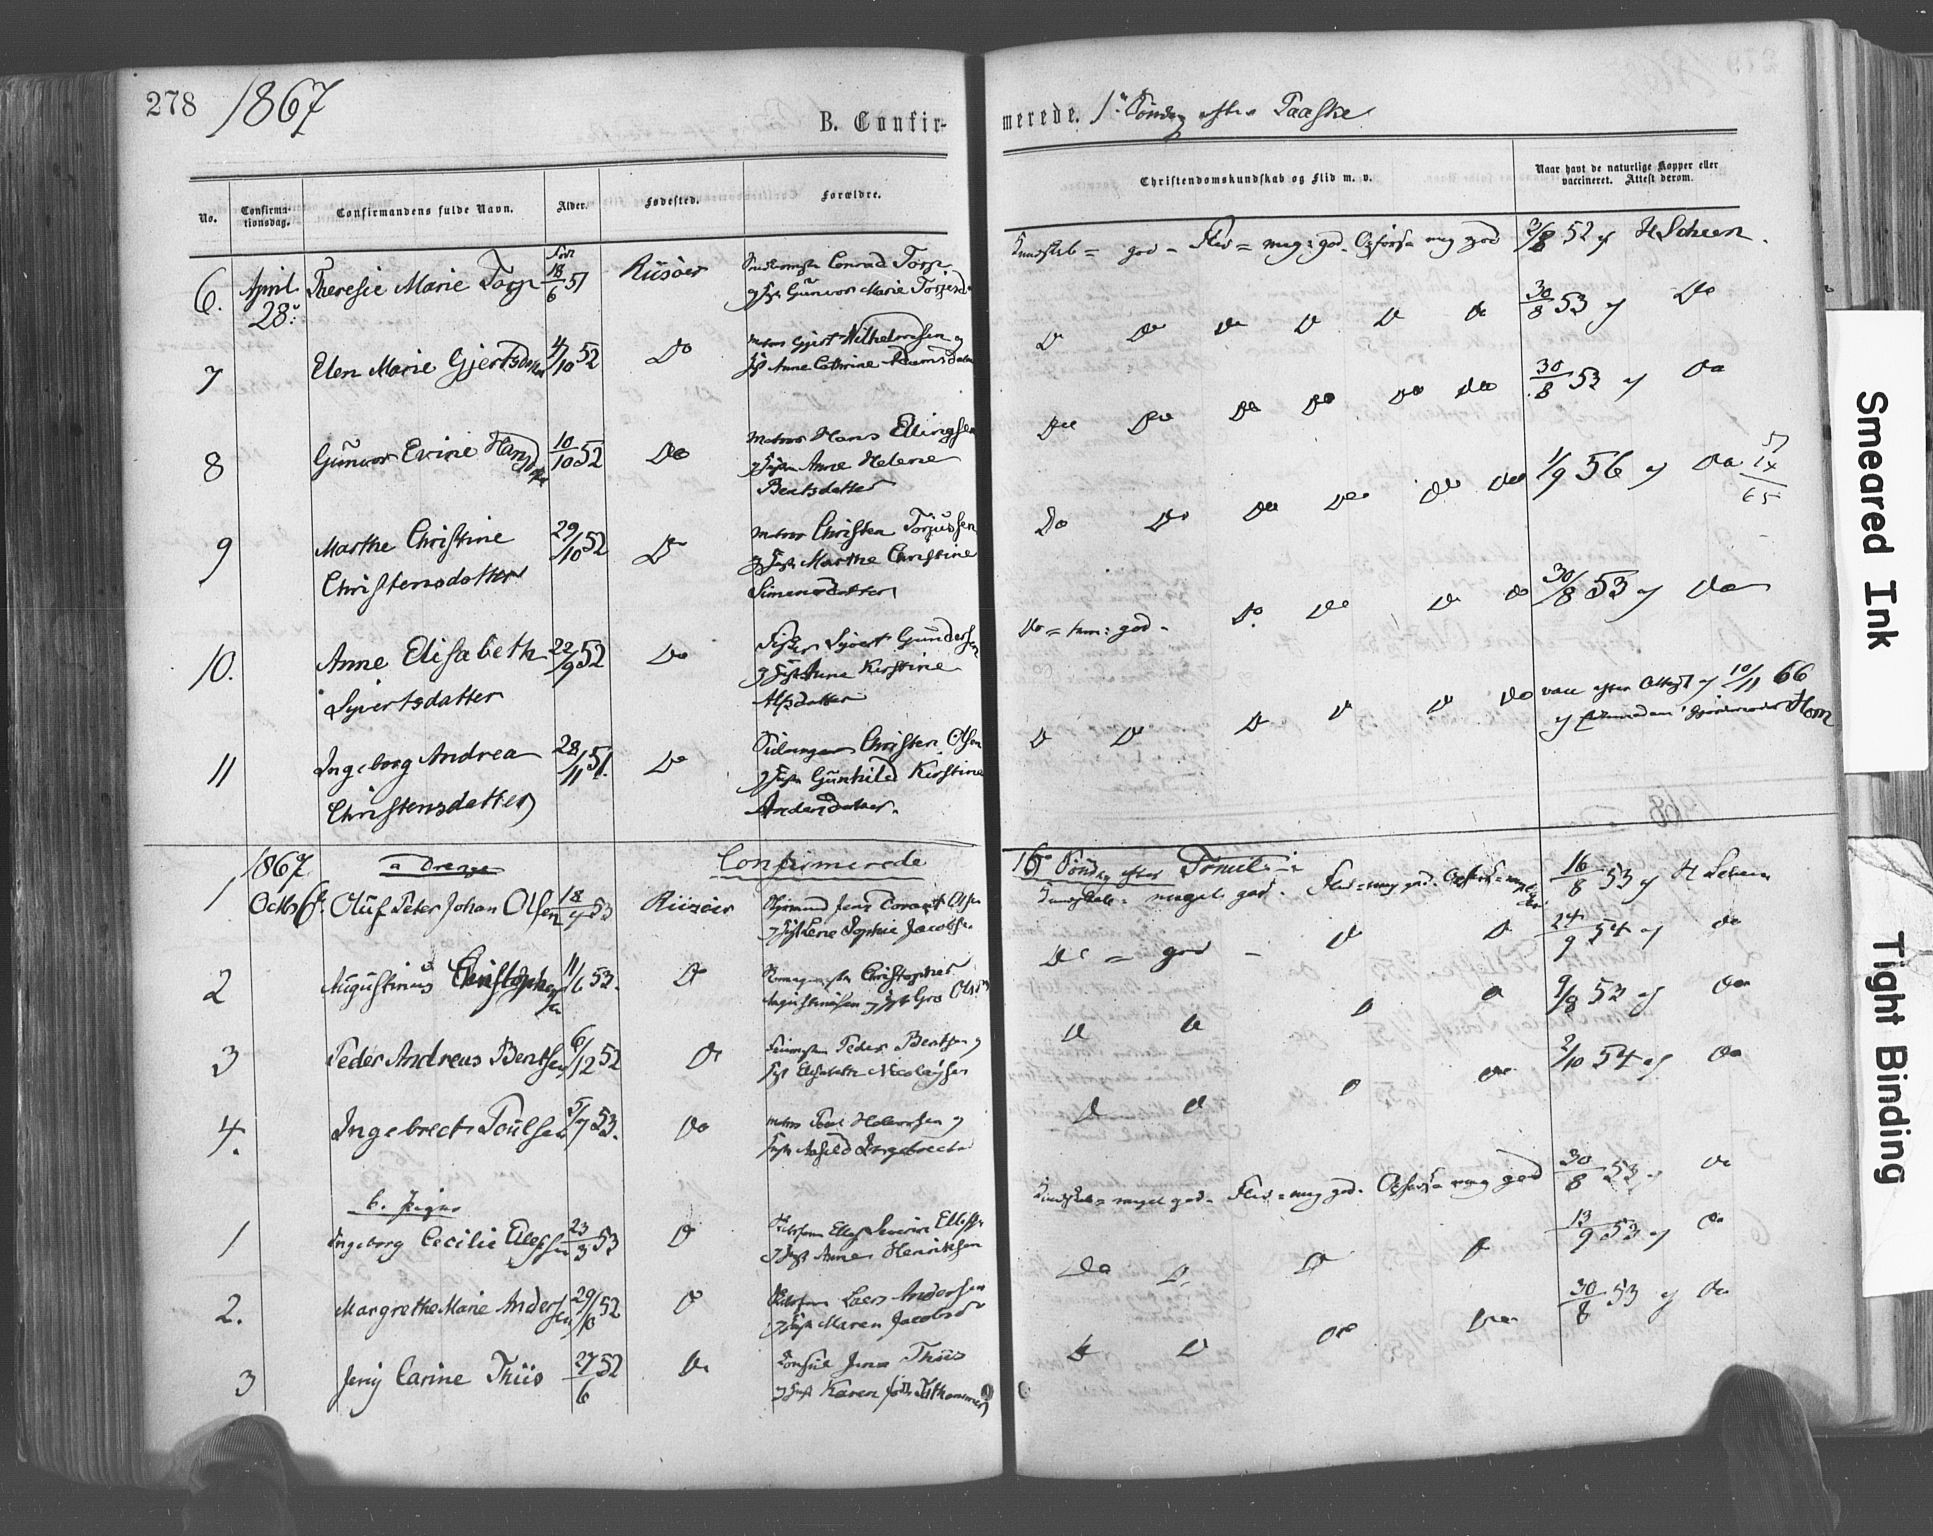 278 1867
B. Confir-
merede. 1ste Søndag efter Paaske
No.
Confirma-
tionsdag.
Confirmandens fulde Navn.
Alder.
Fødested.
Forældre.
Christendomskundskab og Flid m. v.
Naar havt de naturlige Kopper eller
vaccineret. Attest derom.
6. April Theresie Marie Torp 18/6 51 Riisöer Conrad Torp
28: Gunvor Marie
Kundskab = god - Flid = meg: god. Opførs = meg god 2/8 52 af H Scheen.
7 Elen Marie Gjertsdatter 4/10 52 Do Gjert Wilhelmsen og
Anne Cathrine
Do Do Do Do Do Do 30/8 53 af Do
8 Gunvor Evine Hansdatter 10/10 52 Do Matros Hans Ellingsen
Anne Helene
Bentsdatter
Do Do Do Do Do Do 30/8 53 af Do
9 Marthe Christine 29/10 52 Do Matros Christen Torjussen
Christensdatter Marthe Christine
Simonsdatter
Do Do Do Do Do Do 1/9 56 af Do
10. Anne Elisabeth 22/9 52 Do Sivert Gundersen
Sivertsdatter Anne Kirstine
Alfsdatter
Do = tem: god - Do Do Do Do 30/8 53 af Do
11 Ingeborg Andrea 28/11 51. Do Christen Olsen
Christensdatter Gunhild Kirstine
Andersdatter.
Do Do Do Do Do Do vacc efter Attest af 10/11 66
Horn
1867 a Drenge Confirmerede
16de Søndag efter Trinit:
1 Octbr 6te Oluf Peter Johan Olsen 18/4 53 Riisöer Jens Olsen
Lene Sophie Jacobsen
Kundskab = meget god. Flid = meg god. Opførs = meget god. 16/8 53 af H Scheen
2 Augustinus Christophersen 11/6 53. Do Christopher
Augustinusen og Gro Olsen
Do = god - Do Do 24/9 54 af Do
3 Peder Andreas Bentsen 6/12 52 Do Peder Bentsen og
Elisabeth Nicolaysen
Do Do Do Do 9/8 53 af Do
4. Ingebrect Poulsen 5/7 53. Do Matros Poul Halvorsen og
Aasild Ingebrects
Do Do Do Do 2/10 54 af Do
b. Piger
1 Ingeborg Cecilie Ellefsen 23/3 53 Do Ellef Severin Ellefsen
Anne Henriksen
Kundskab = meget god - Flid = meg god. Opførs = meg god 30/8 53 Do
2. Margrethe Marie Andersen 29/10 52 Do Lars Andersen
Maren Jacobsd
Do Do Do Do 13/9 53 af Do
3 Jeny Carine Thiis 27/6 52 Do Consul Jens Thiis
Karen
Do Do Do Do 30/8 53 af Do
Smeared Ink
Tight Binding